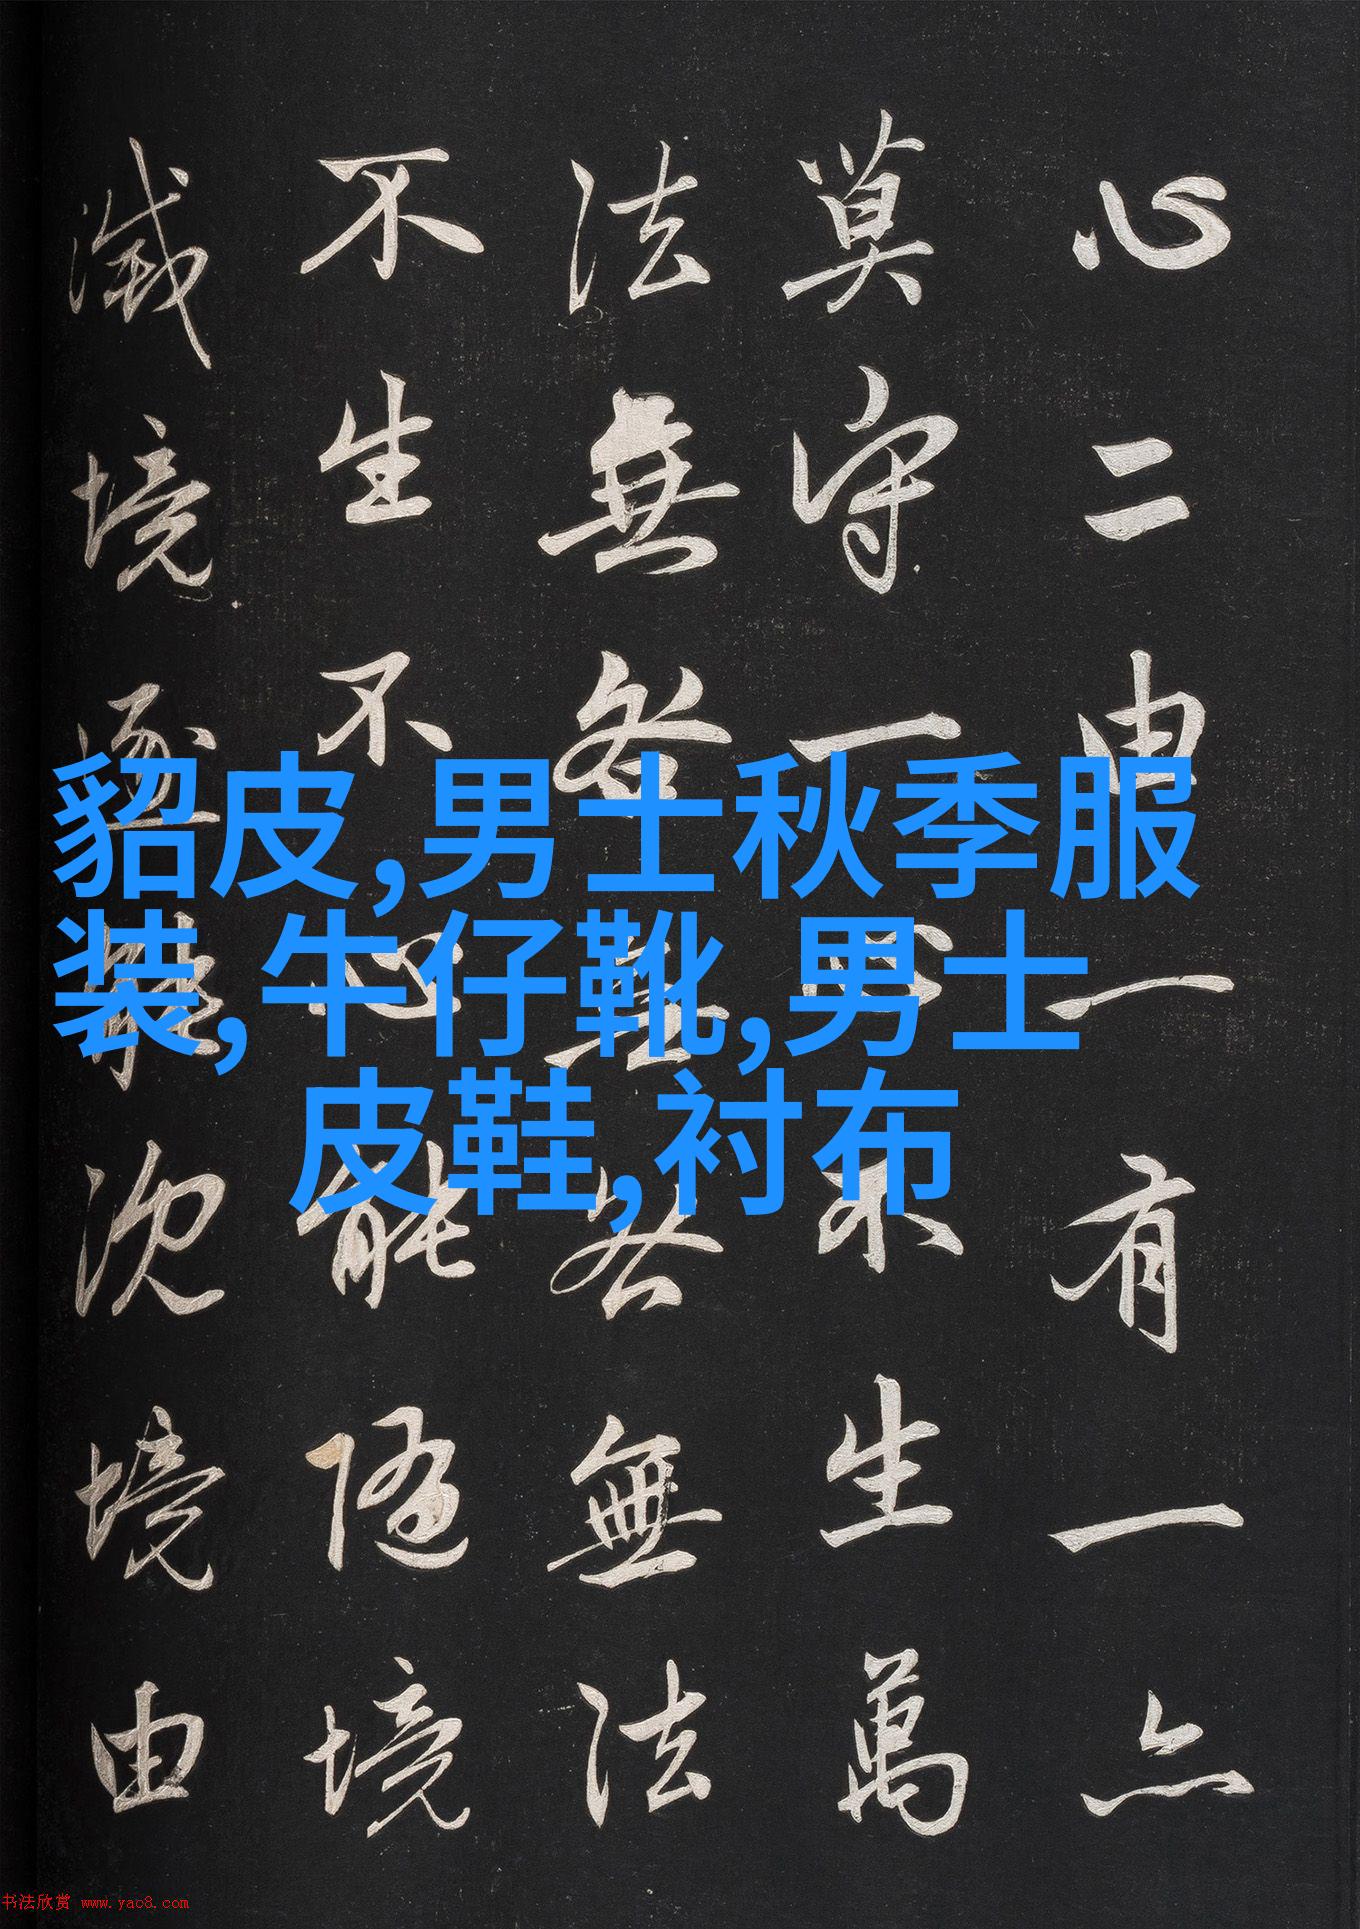 心二由一有一亦
莫守一心不生萬
法無咎無咎無法
不生不心能隨境
滅境逐能沉境由
貂皮,男士秋季服
装,牛仔靴,男士
皮鞋,衬布
书法欣赏 www.yac8.com